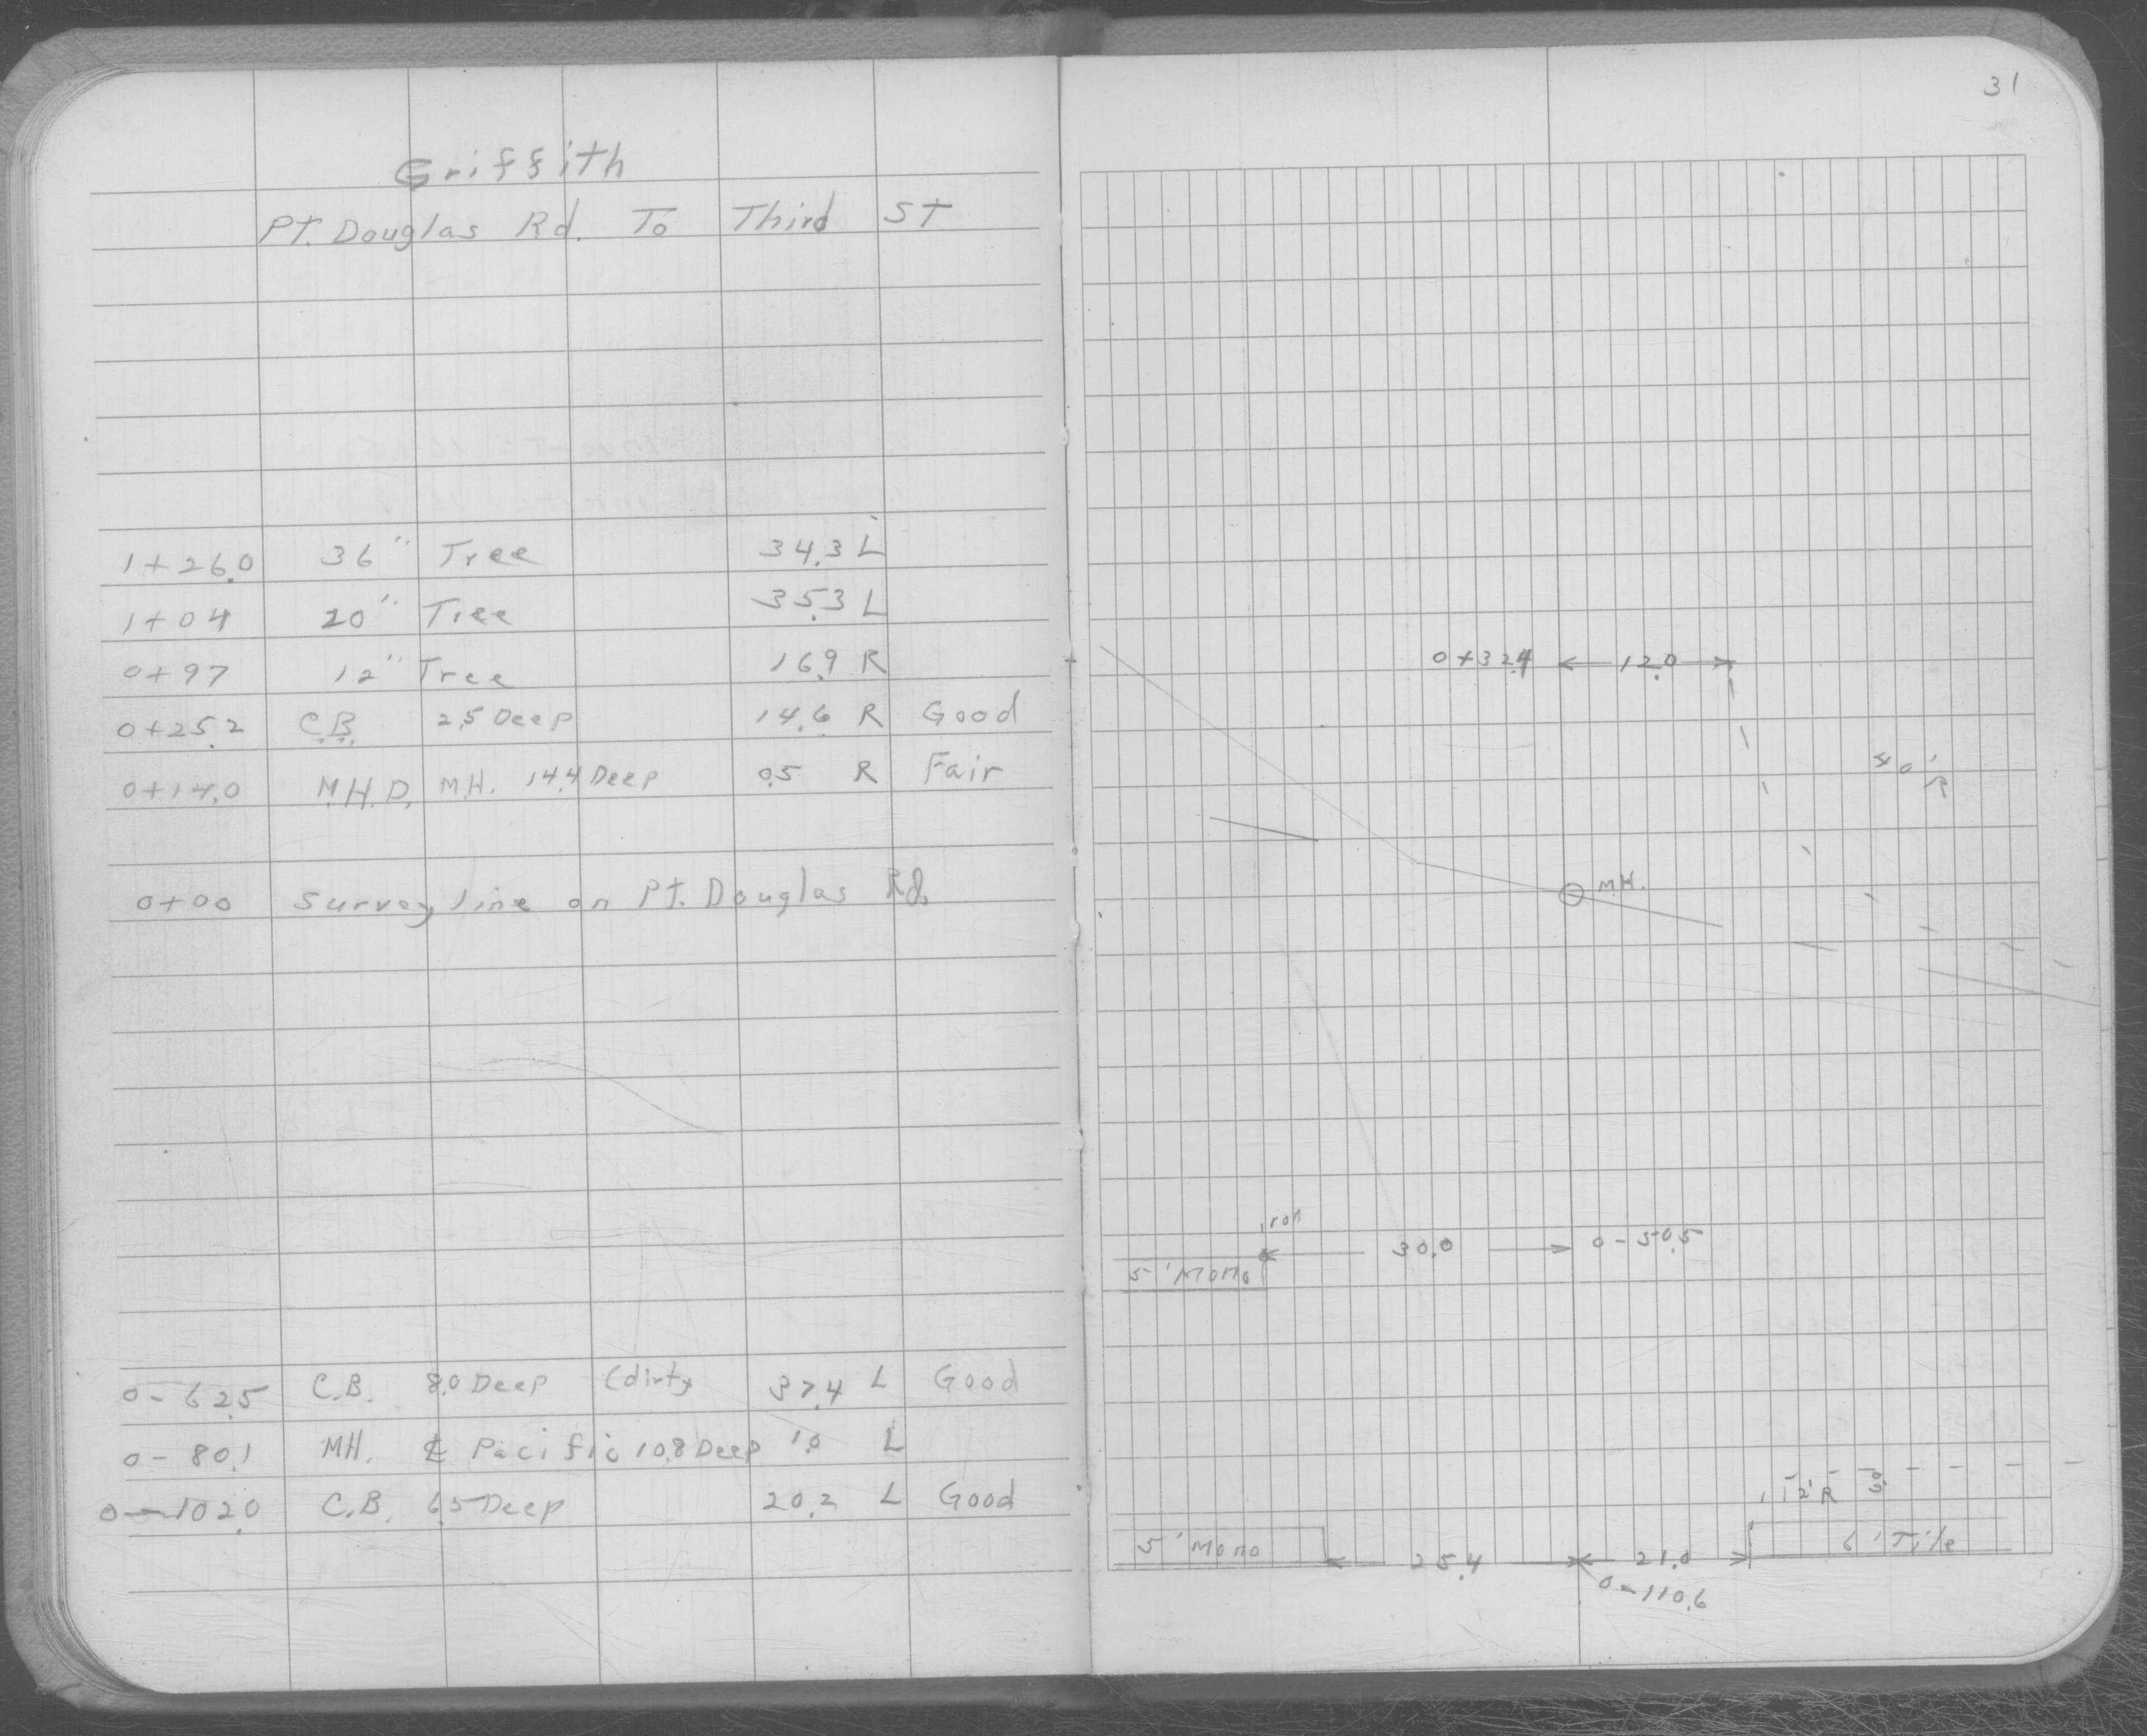 31
Griffith
Pt. Douglas Rd. To Third ST
1+26.0 36" Tree 34.3 L
1+04 20" Tree 35.3 L
0+97 12" Tree 16.9 R
0+25.2 C.B. 2.5 Deep 14.6 R Good
0+14.0 M.H.D. M.H. 14.4 Deep 0.5 R Fair
0+00 Survey line on Pt. Douglas Rd.
0-62.5 C.B. 8.0 Deep (dirty 37.4 L Good
0-80.1 MH. ℄ Pacific 10.8 Deep 1.0 L
0-102.0 C.B. 6.5 Deep 20.2 L Good
0+32.4 12.0
40' R
M.H.
iron
30.0 0-50.5
5' Mono
12' R
5' Mono 25.4 21.0 6' Tile
0-110.6